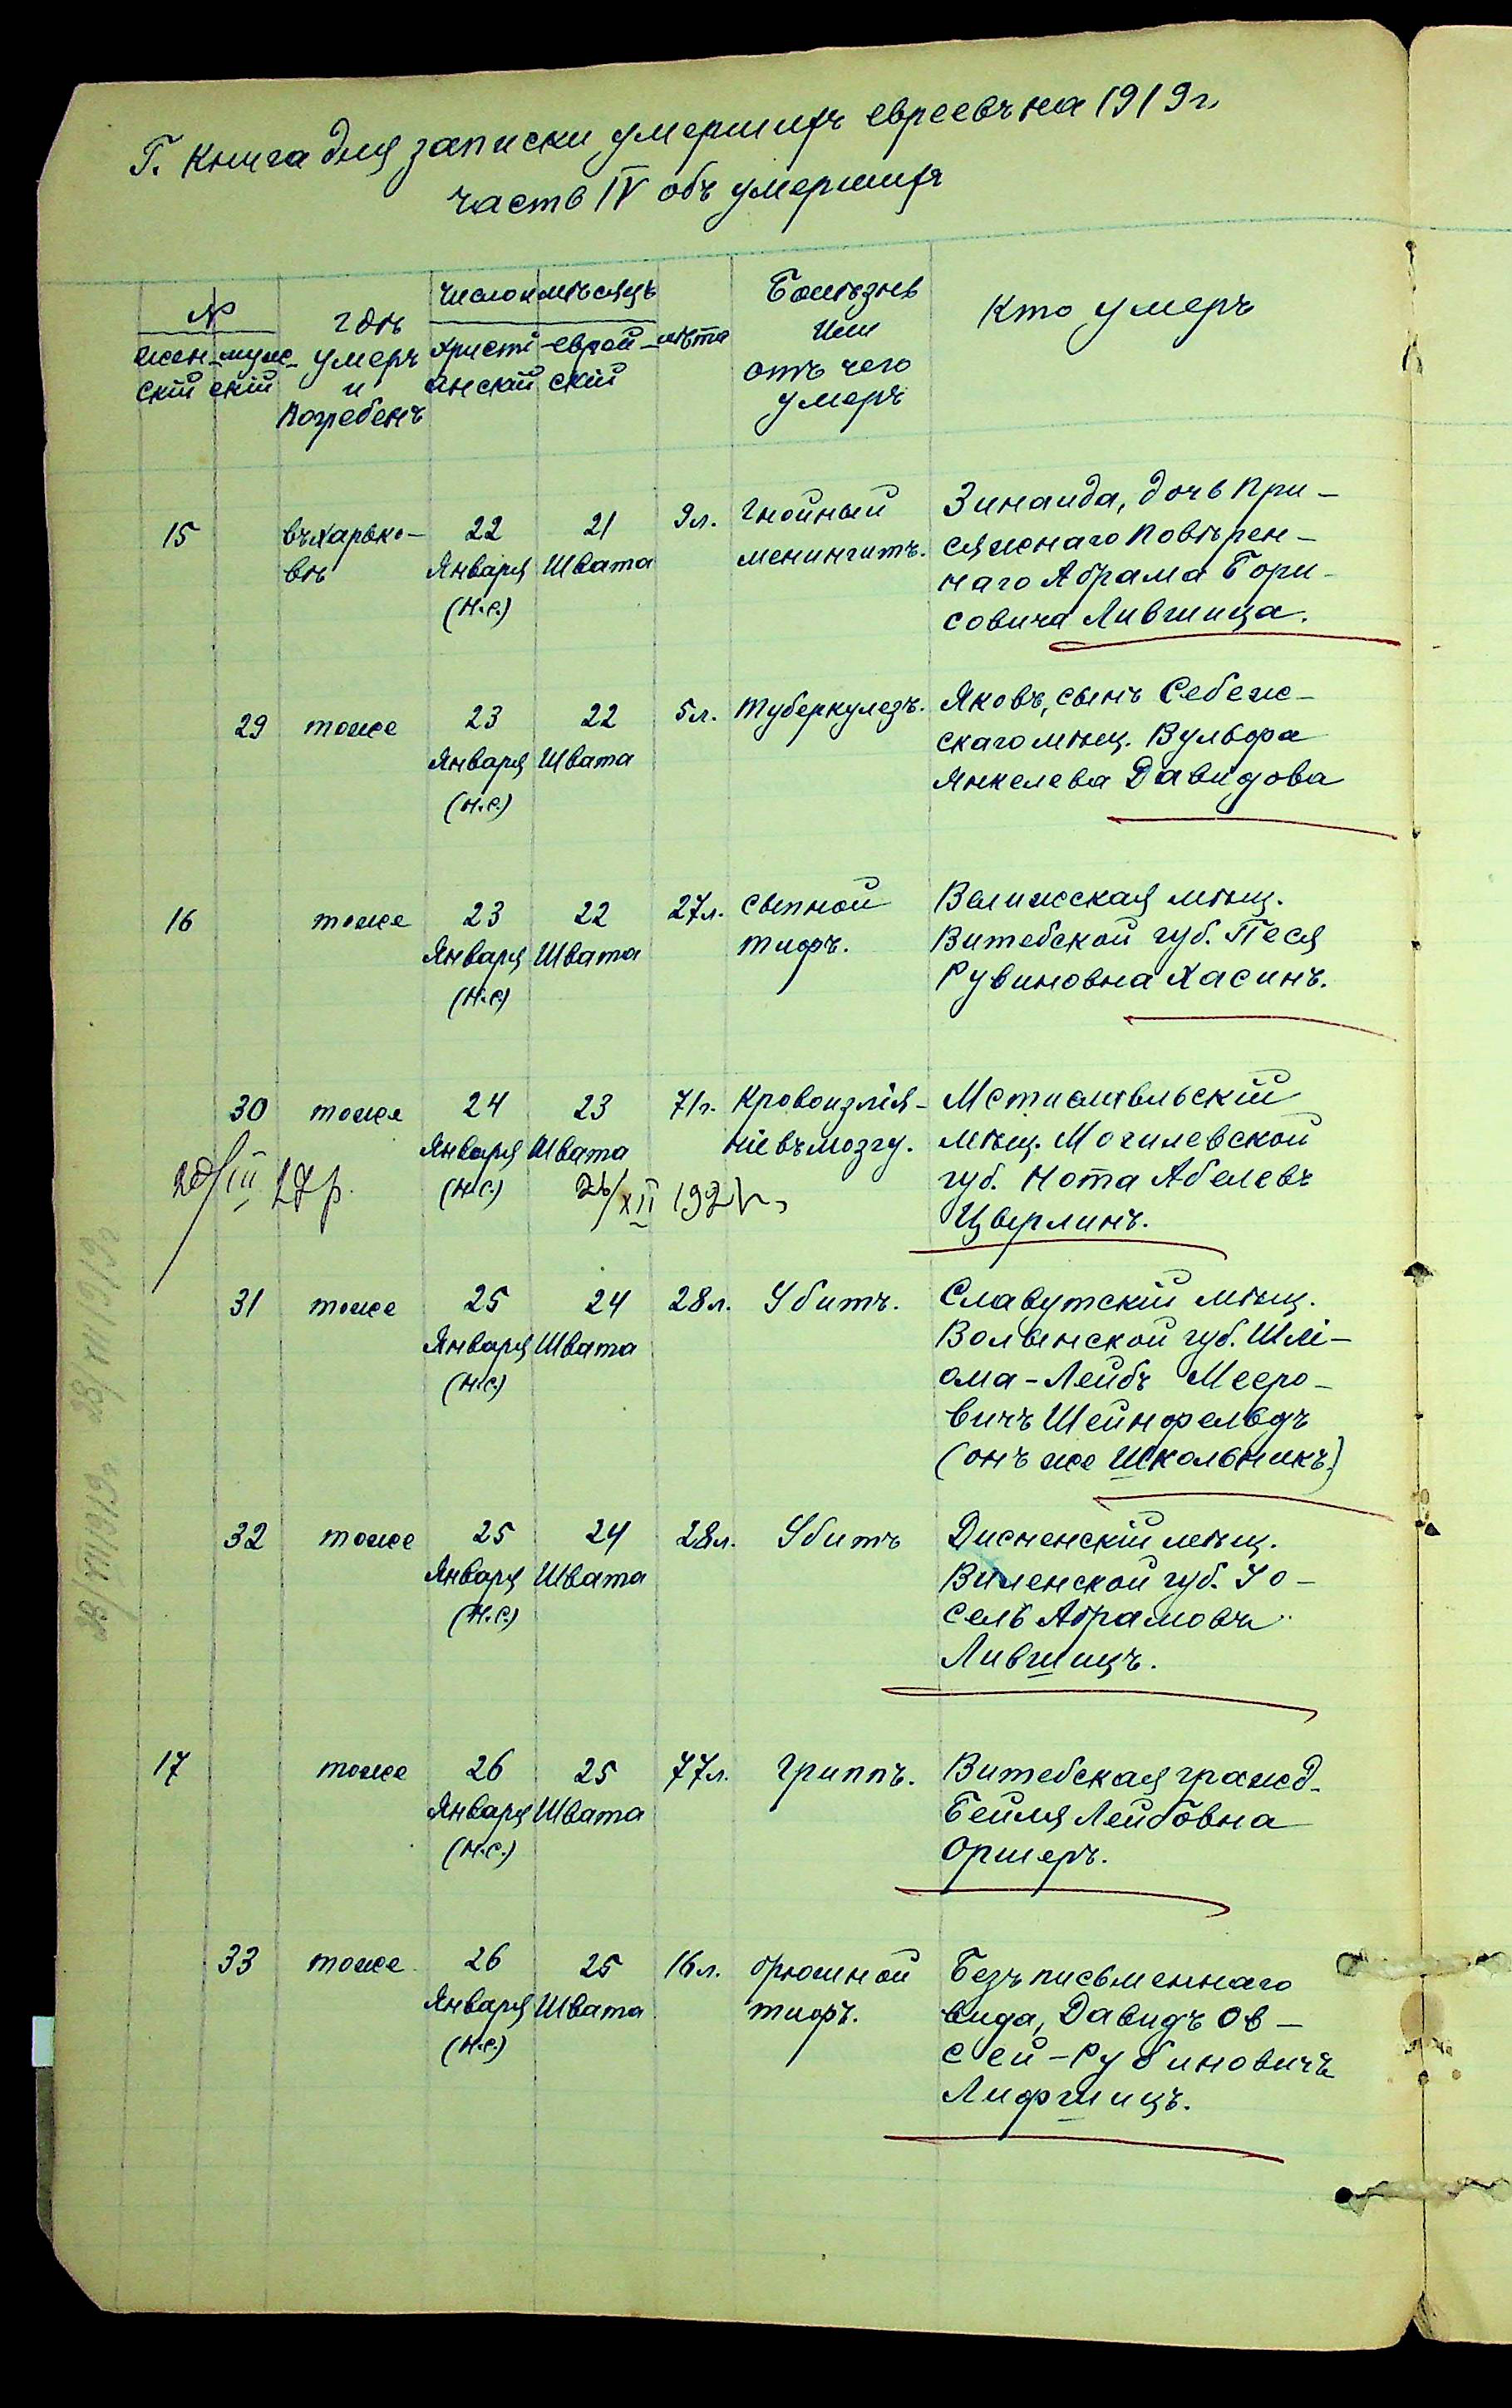 Г. Книга для записки умершихъ евреевъ на 1919 г.
часть IV объ умершихъ
№
женскій
мужескій
гдѣ
умеръ
и
погребенъ
Число и мѣсяцъ
Христі-
анскій
еврей-
скій
лѣта
Болѣзнь
или
отъ чего
умеръ
Кто умеръ
15 въ Харько- 22 21 9 л. Гнойный Зинаида, дочь При-
вѣ Января Швата менингитъ. сяжнаго Повѣрен-
(н.с.) наго Абрама Бори-
совича Лившица.
29 тоже 23 22 5 л. Туберкулезъ. Яковъ, сынъ Себеж-
Января Швата скаго мѣщ. Вульфа
(н.с.) Янкелева Давидова
16 тоже 23 22 27 л. Сыпной Велижская мѣщ.
Января Швата тифъ. Витебской губ. Песя
(н.с) Рувиновна Хасинъ.
30 тоже 24 23 71 г. Кровоизлія- Мстиславльскій
Января Швата ніе въ мозгу. мѣщ. Могилевской
(н.с.) губ. Нота Абелевъ
Цверлинъ.
31 тоже 25 24 28 л. Убитъ. Славутскій мѣщ.
Января Швата Волынской губ. Шлі-
(н.с.) ома-Лейбъ Мееро-
вичъ Шейнфельдъ
(онъ же Школьникъ)
32 тоже 25 24 28 л. Убитъ Дисненскій мѣщ.
Января Швата Виленской губ. Іо-
(н.с.) сель Абрамовъ
Лившицъ.
17 тоже 26 25 77 л. Гриппъ. Витебская гражд.
Января Швата Бейля Лейбовна
(н.с.) Оршеръ.
33 тоже 26 25 16 л. брюшной Безъ письменнаго
Января Швата тифъ. вида, Давидъ Ов-
(н.с.) сей-Рубиновичъ
Лифшицъ.